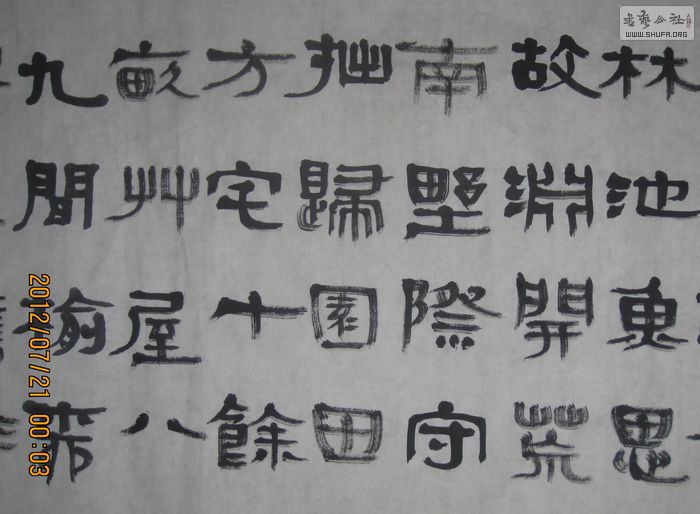 林池魚思
故淵開荒
南野際守
拙歸園田
方宅十餘
畝艸屋八
九間榆
書藝公社
WWW.SHUFA.ORG
2012/07/21 00:03